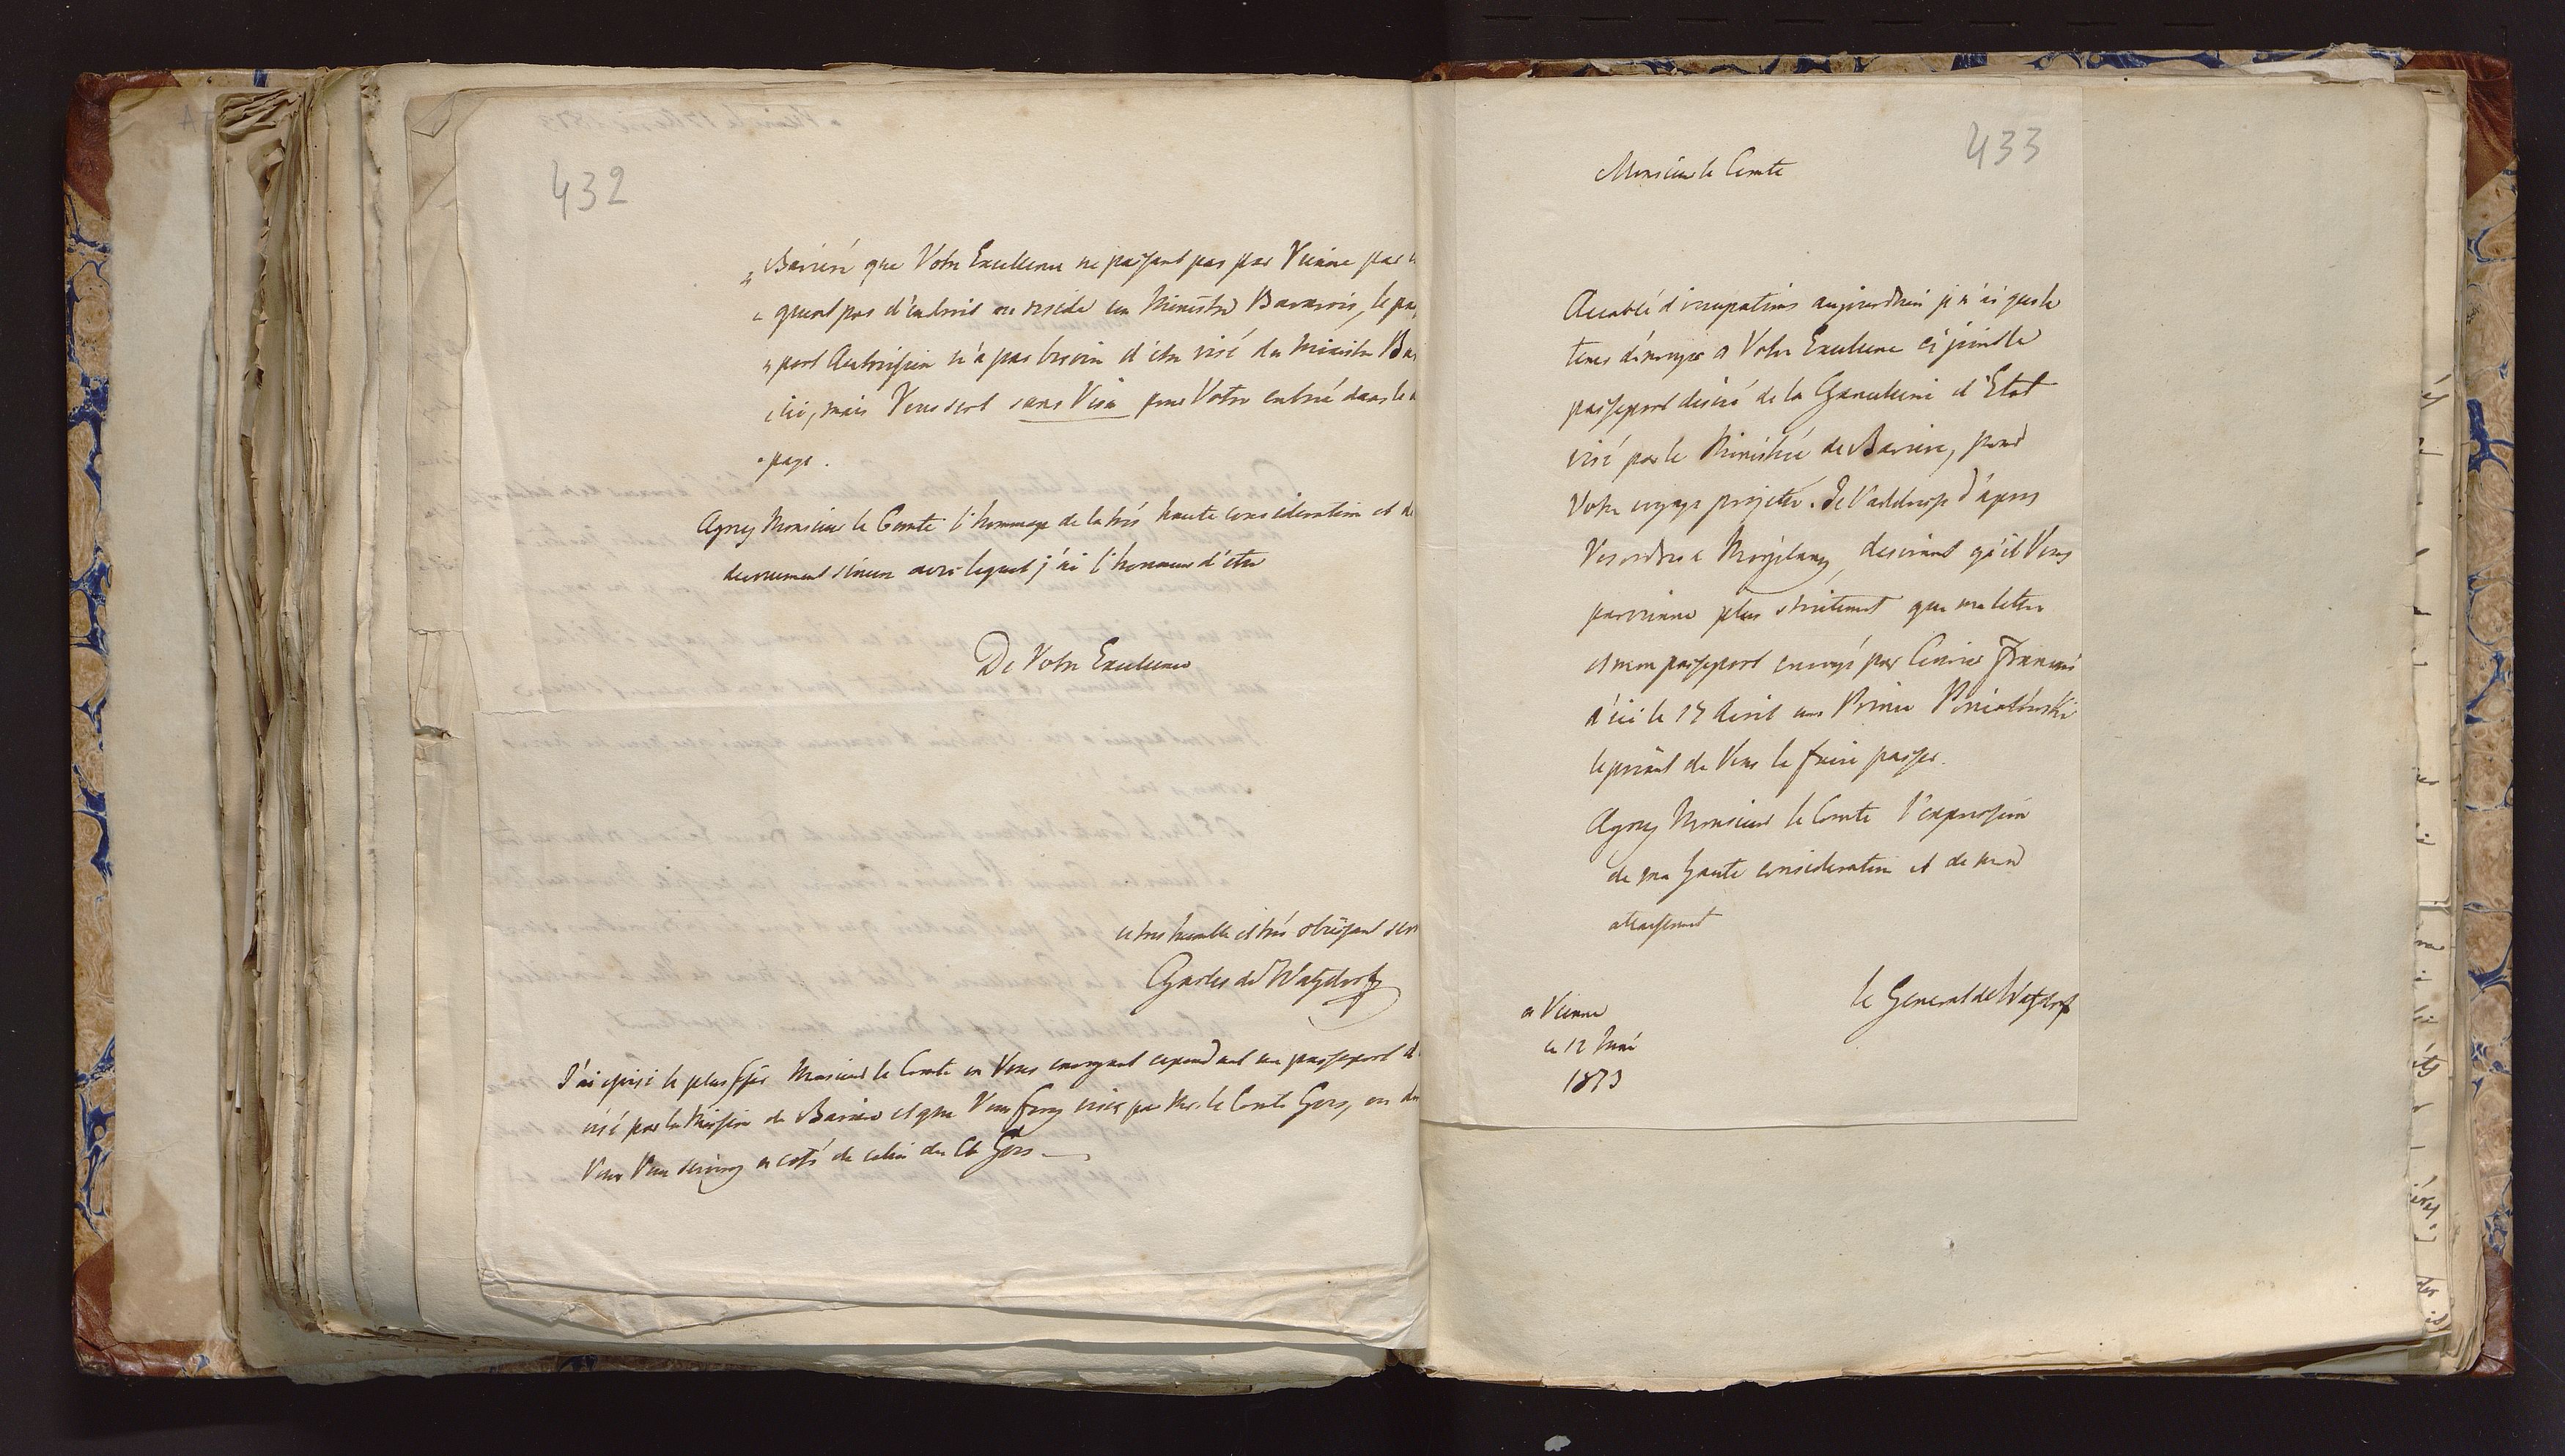 432
Bavière que Votre Excellence ne passant pas par Vienne par
quent pas d'endroit ou reside un Ministre Bavarois, le pas
port Autrichien n'a pas besoin d'être visé du Ministre Ba
ici, mais Vous sert sans Visa pour Votre entrée dans le
pays.
Agréez Monsieur le Comte l'hommage de la très haute consideration et
devouement sincere avec lequel j'ai l'honneur d'etre
De Votre Excellence
le tres humble et très obeissant ser
Charles de Watzdorff
J'ai choisi le plus sûr Monsieur le Comte en Vous envoyant cependant un passeport
visé par la Mission de Baviere et que Vous ferez viser par Mr. le Comte Gors, ou
Vous Vous servirez a coté de celui du Cte Gors
433
Monsieur le Comte
Accablé d'occupations aujourdhui je n'ai que le
tems d'envoyer a Votre Excellence ci joint le
passeport desiré de la Chancellerie d'Etat
visé par le Ministre de Baviere, pour
Votre voyage projetté. Je l'addresse d'apres
Vos ordres a desirant qu'il Vous
parvienne plus que ma lettre
et mon passeport envoyé par Courier Francois
d'ici le 17 Avril au Prince Poniatowski
le priant de Vous le faire passer.
Agréez Monsieur le Comte l'expression
de ma haute consideration et de mon
attachement
le General de Watzdorff
a Vienne
ce 12 Mai
1813